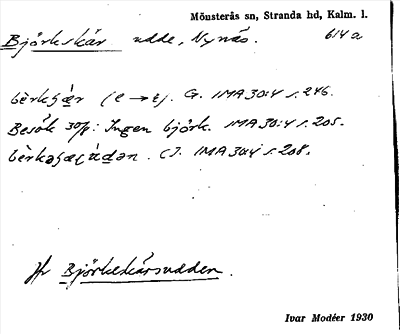 Mönsterås sn, Stranda hd, Kalm. l.
Björkskär udde, Nynäs. 6/4 a
bèrkʂæ̀r (e → ɛ). G. IMA 30:4 s. 246.
Besök 30/8: Ingen björk. IMA 30:4 s. 205.
CJ. IMA 30:4 s. 208.
Jfr Björkskärsudden.
Ivar Modéer 1930